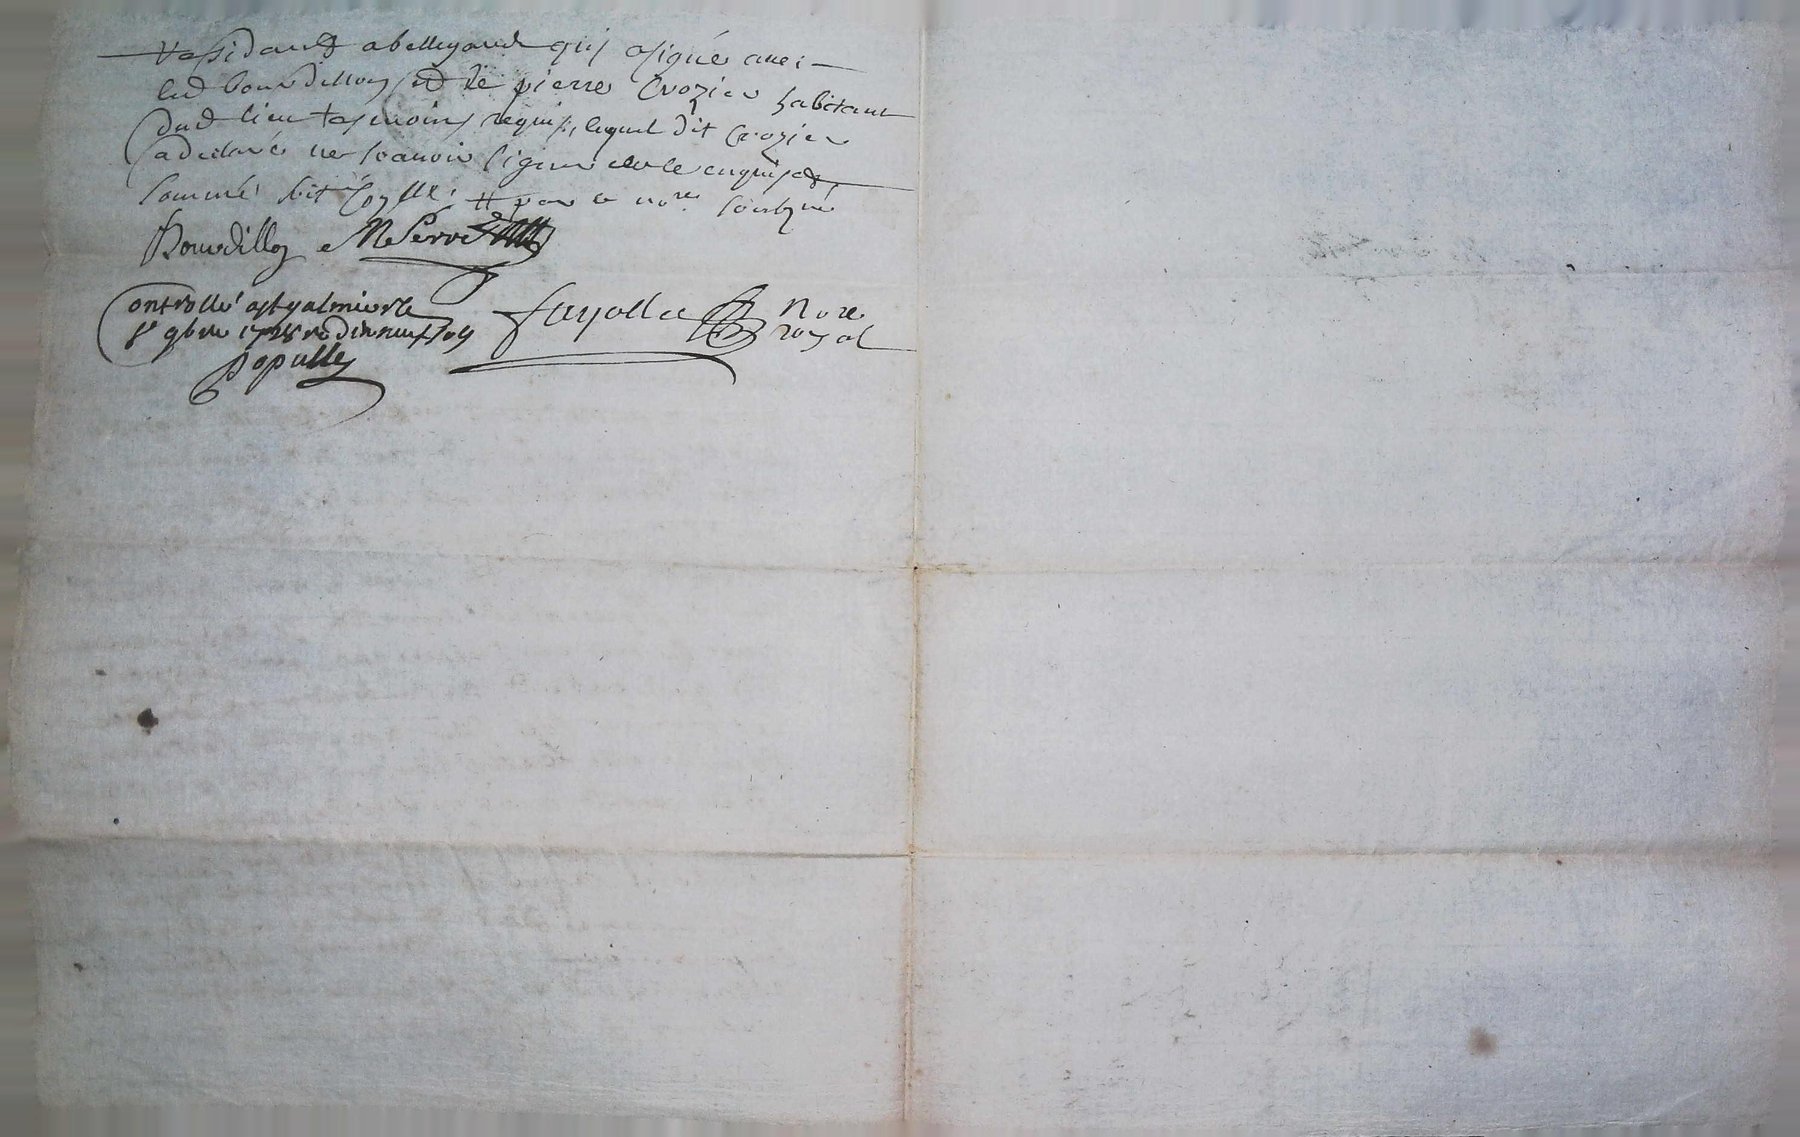 Residant a bellegarde qui a signé avec
led bourdillon et de pierre Crozier habitant
dud lieu tesmoins requis, lequel dit Crozier
a declaré ne scavoir signer de ce enquis et
sommé soit # par le no.re soubzné
Bourdillon MSerre
Controllé a st galmier le
9bre dix neuf sols
Fayolle No.re
royal
Populle